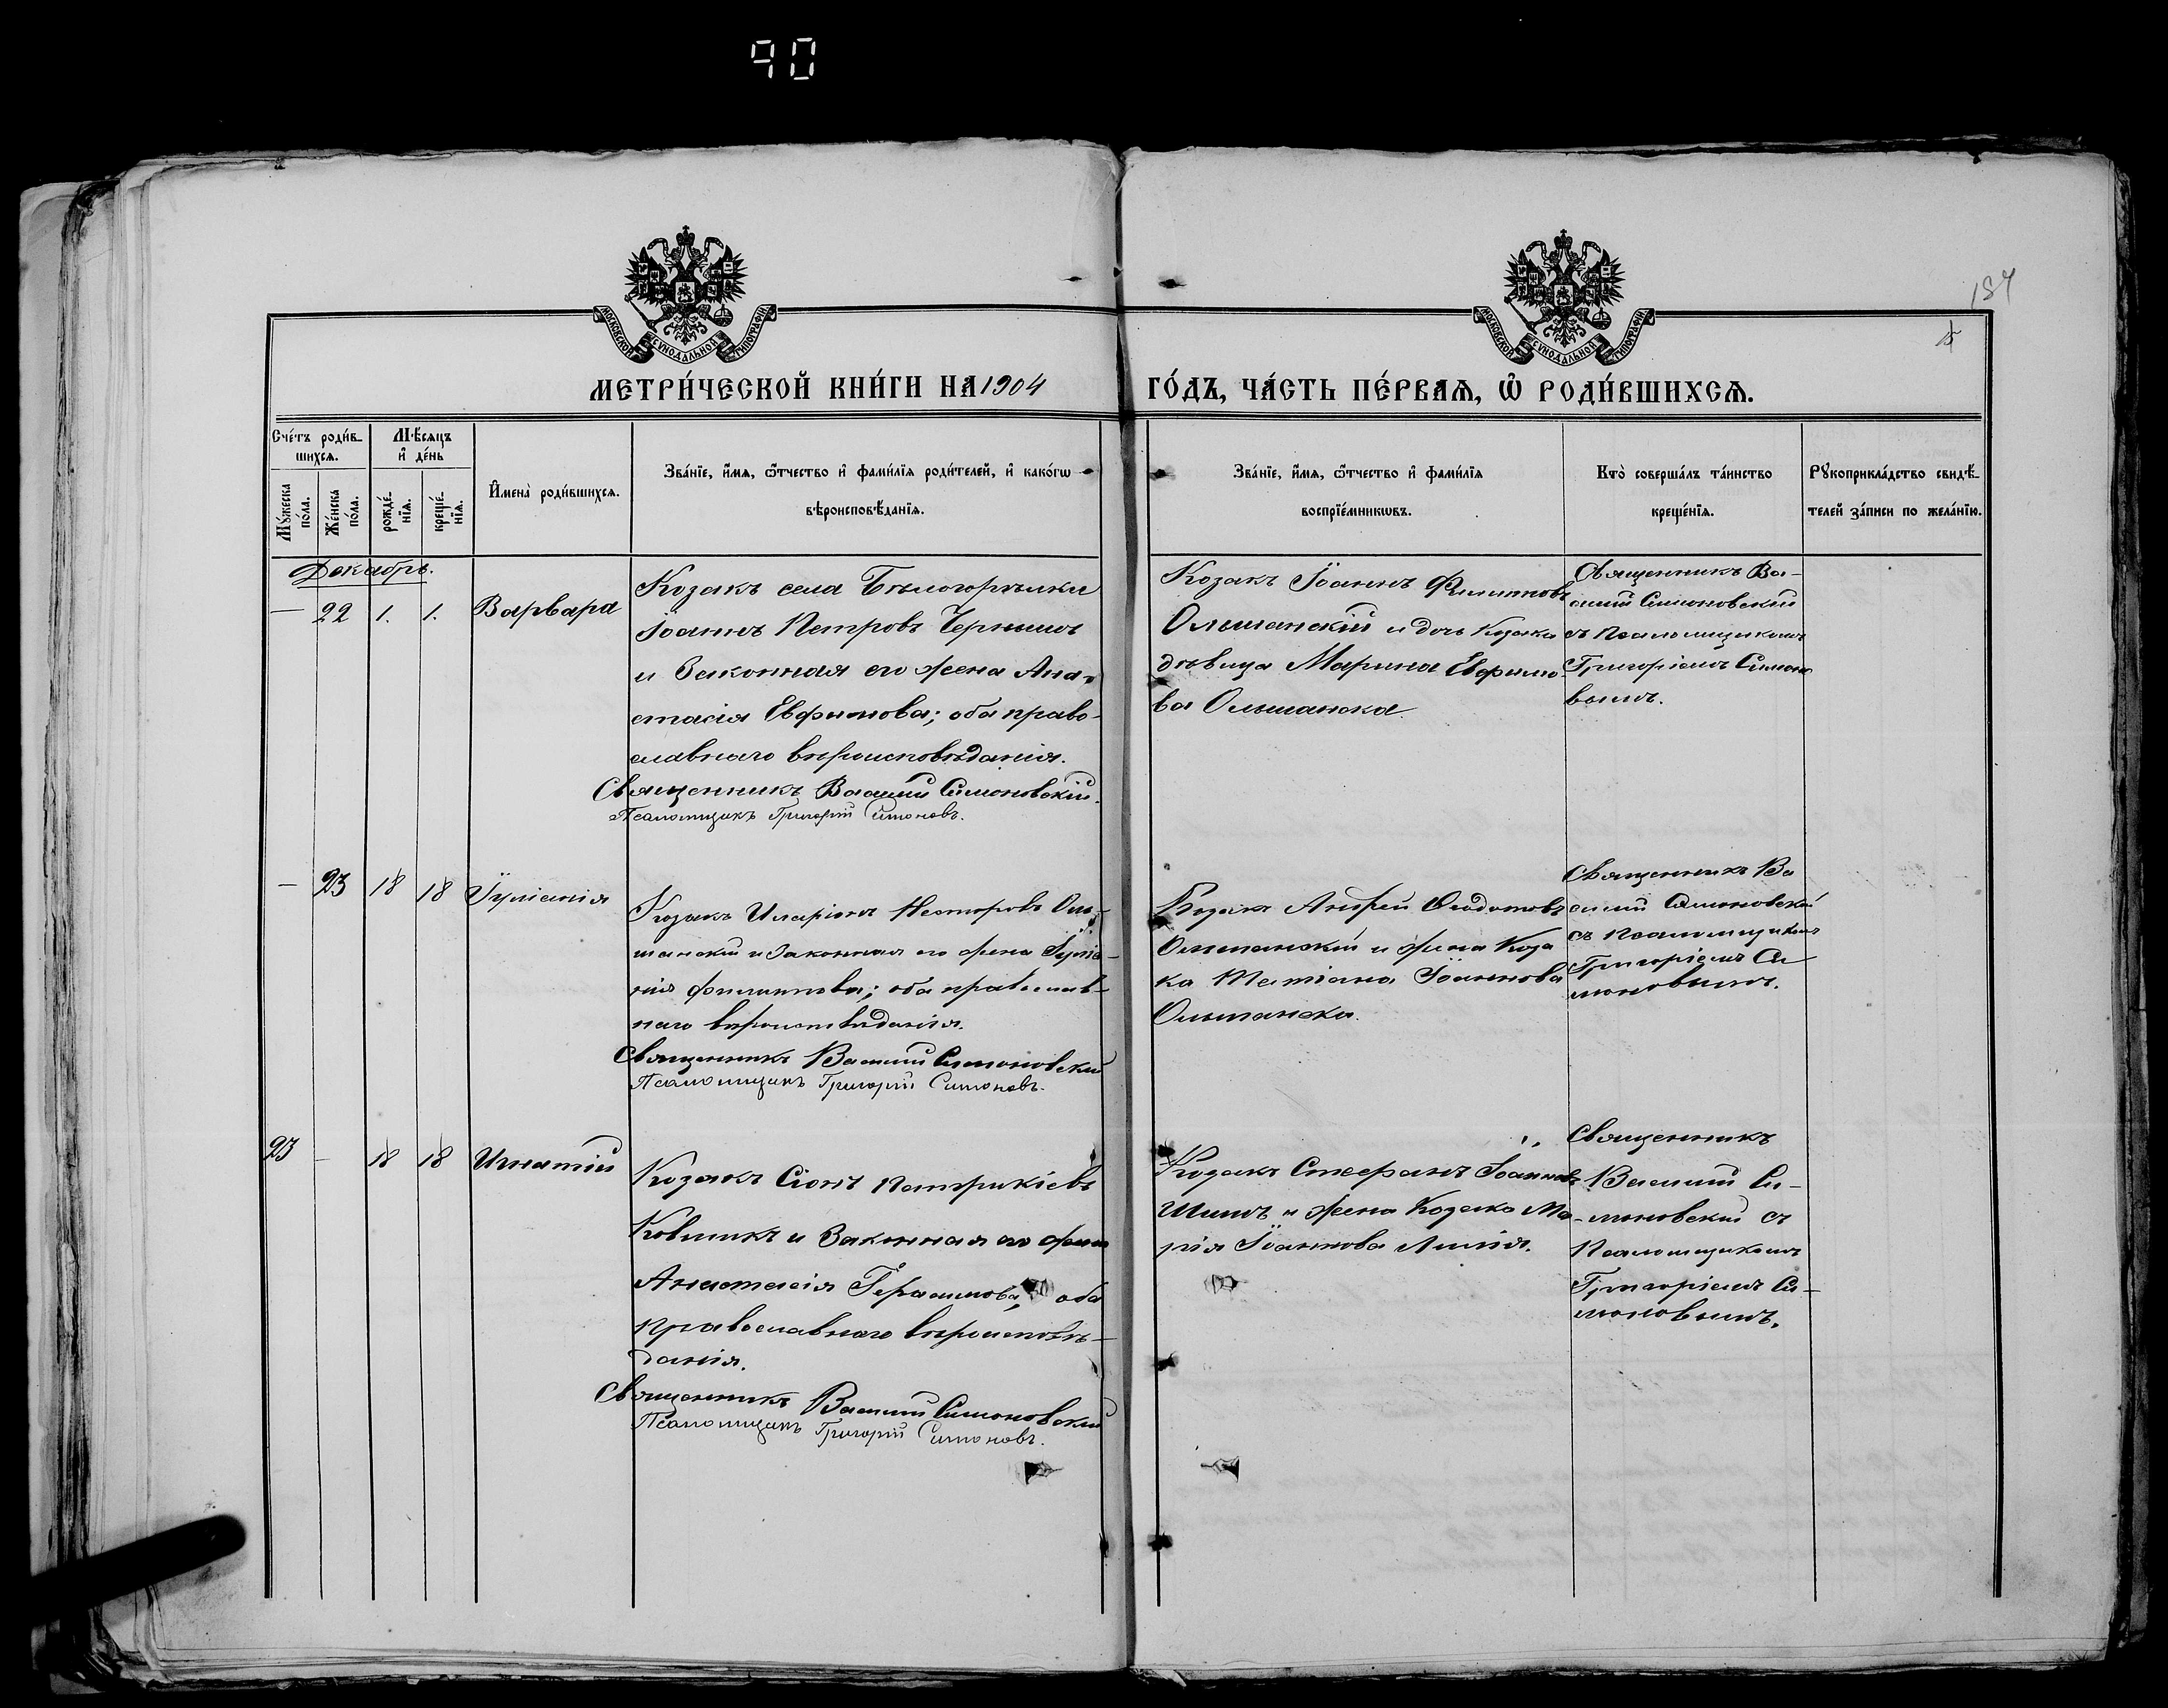 90
187
МОСКОВСКОЙ СѴНОДАЛЬНОЙ ТИПОГРАФІИ
МОСКОВСКОЙ СѴНОДАЛЬНОЙ ТИПОГРАФІИ
МЕТРИ́ЧЕСКОЙ КНИ́ГИ НА 1904 ГО́ДЪ, ЧА́СТЬ ПЕ́РВАѦ, Ѡ҆ РОДИ́ВШИХСѦ.
Сче́тъ роди́в-
шихсѧ.
Мѣ́сяцъ
и҆ де́нь
И҆мена̀ роди́вшихсѧ.
Зва́нїе, и҆́мѧ, ѻ҆́тчество и҆ фами́лїѧ роди́телей, и҆ како́гѡ
вѣроисповѣ́данїѧ.
Зва́нїе, и҆́мѧ, ѻ҆́тчество и҆ фами́лїѧ
воспрїе́мникѡвъ.
Кто̀ соверша́лъ та́инство
креще́нїѧ.
Рꙋкоприкла́дство свидѣ́-
телей за́писи по жела́нїю.
Мꙋ́жеска
по́ла.
Же́нска
по́ла.
рожде́-
нїѧ.
креще́-
нїѧ.
Декабрь.
— 22 1. 1. Варвара
Козакъ села Бѣлогорѣлки
Іоаннъ Петровъ Чернышъ
и законная его жена Ана-
стасія Евфимова; оба право-
славнаго вѣроисповѣданія.
Священникъ Василій Симоновскій.
Псаломщикъ Григорій Симоновъ.
Козакъ Іоаннъ Филипповъ
Ольшанскій и дочь Козака
дѣвица Марина Евфимо-
ва Ольшанска.
Священникъ Ва-
силій Симоновскій
съ Псаломщикомъ
Григоріемъ Симоно
вымъ.
— 23 18 18 Іуліанія
Козакъ Иларіонъ Несторовъ Оль-
шанскій и законная его жена Іуліа-
нія Филиппова; оба православ-
наго вѣроисповѣданія.
Священникъ Василій Симоновскій
Псаломщикъ Григорій Симоновъ.
Козакъ Андрей Ѳеодотовъ
Ольшанскій и жена Коза
ка Татіана Іоаннова
Ольшанска.
Священникъ Ва
силій Симоновскій
съ Псаломщикомъ
Григоріемъ Си
моновымъ.
23 — 18 18 Игнатій
Козакъ Сіонъ Патрикіевъ
Ковшикъ и законная его жена
Анастасія Герасимова, оба
православнаго вѣроисповѣ-
данія.
Священникъ Василій Симоновскій
Псаломщикъ Григорій Симоновъ.
Козакъ Стефанъ Іоанновъ
и жена Козака Ма-
рія Іоаннова
Священникъ
Василій Си-
моновскій съ
Псаломщикомъ
Григоріемъ Си-
моновымъ.